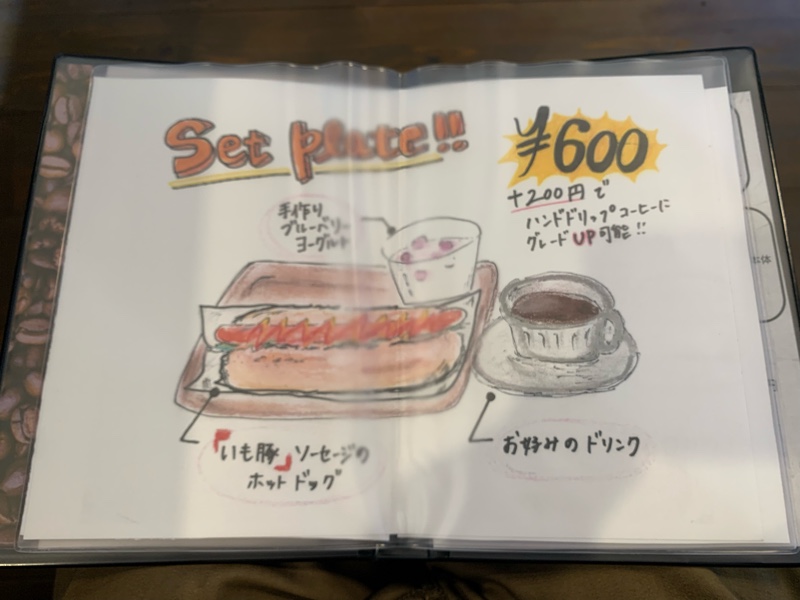 Set plate!!
¥600
+200円で
ハンドドリップコーヒーに
グレードUP可能!!
手作り
ブルーベリー
ヨーグルト
「いも豚」ソーセージの
ホットドッグ
お好みのドリンク